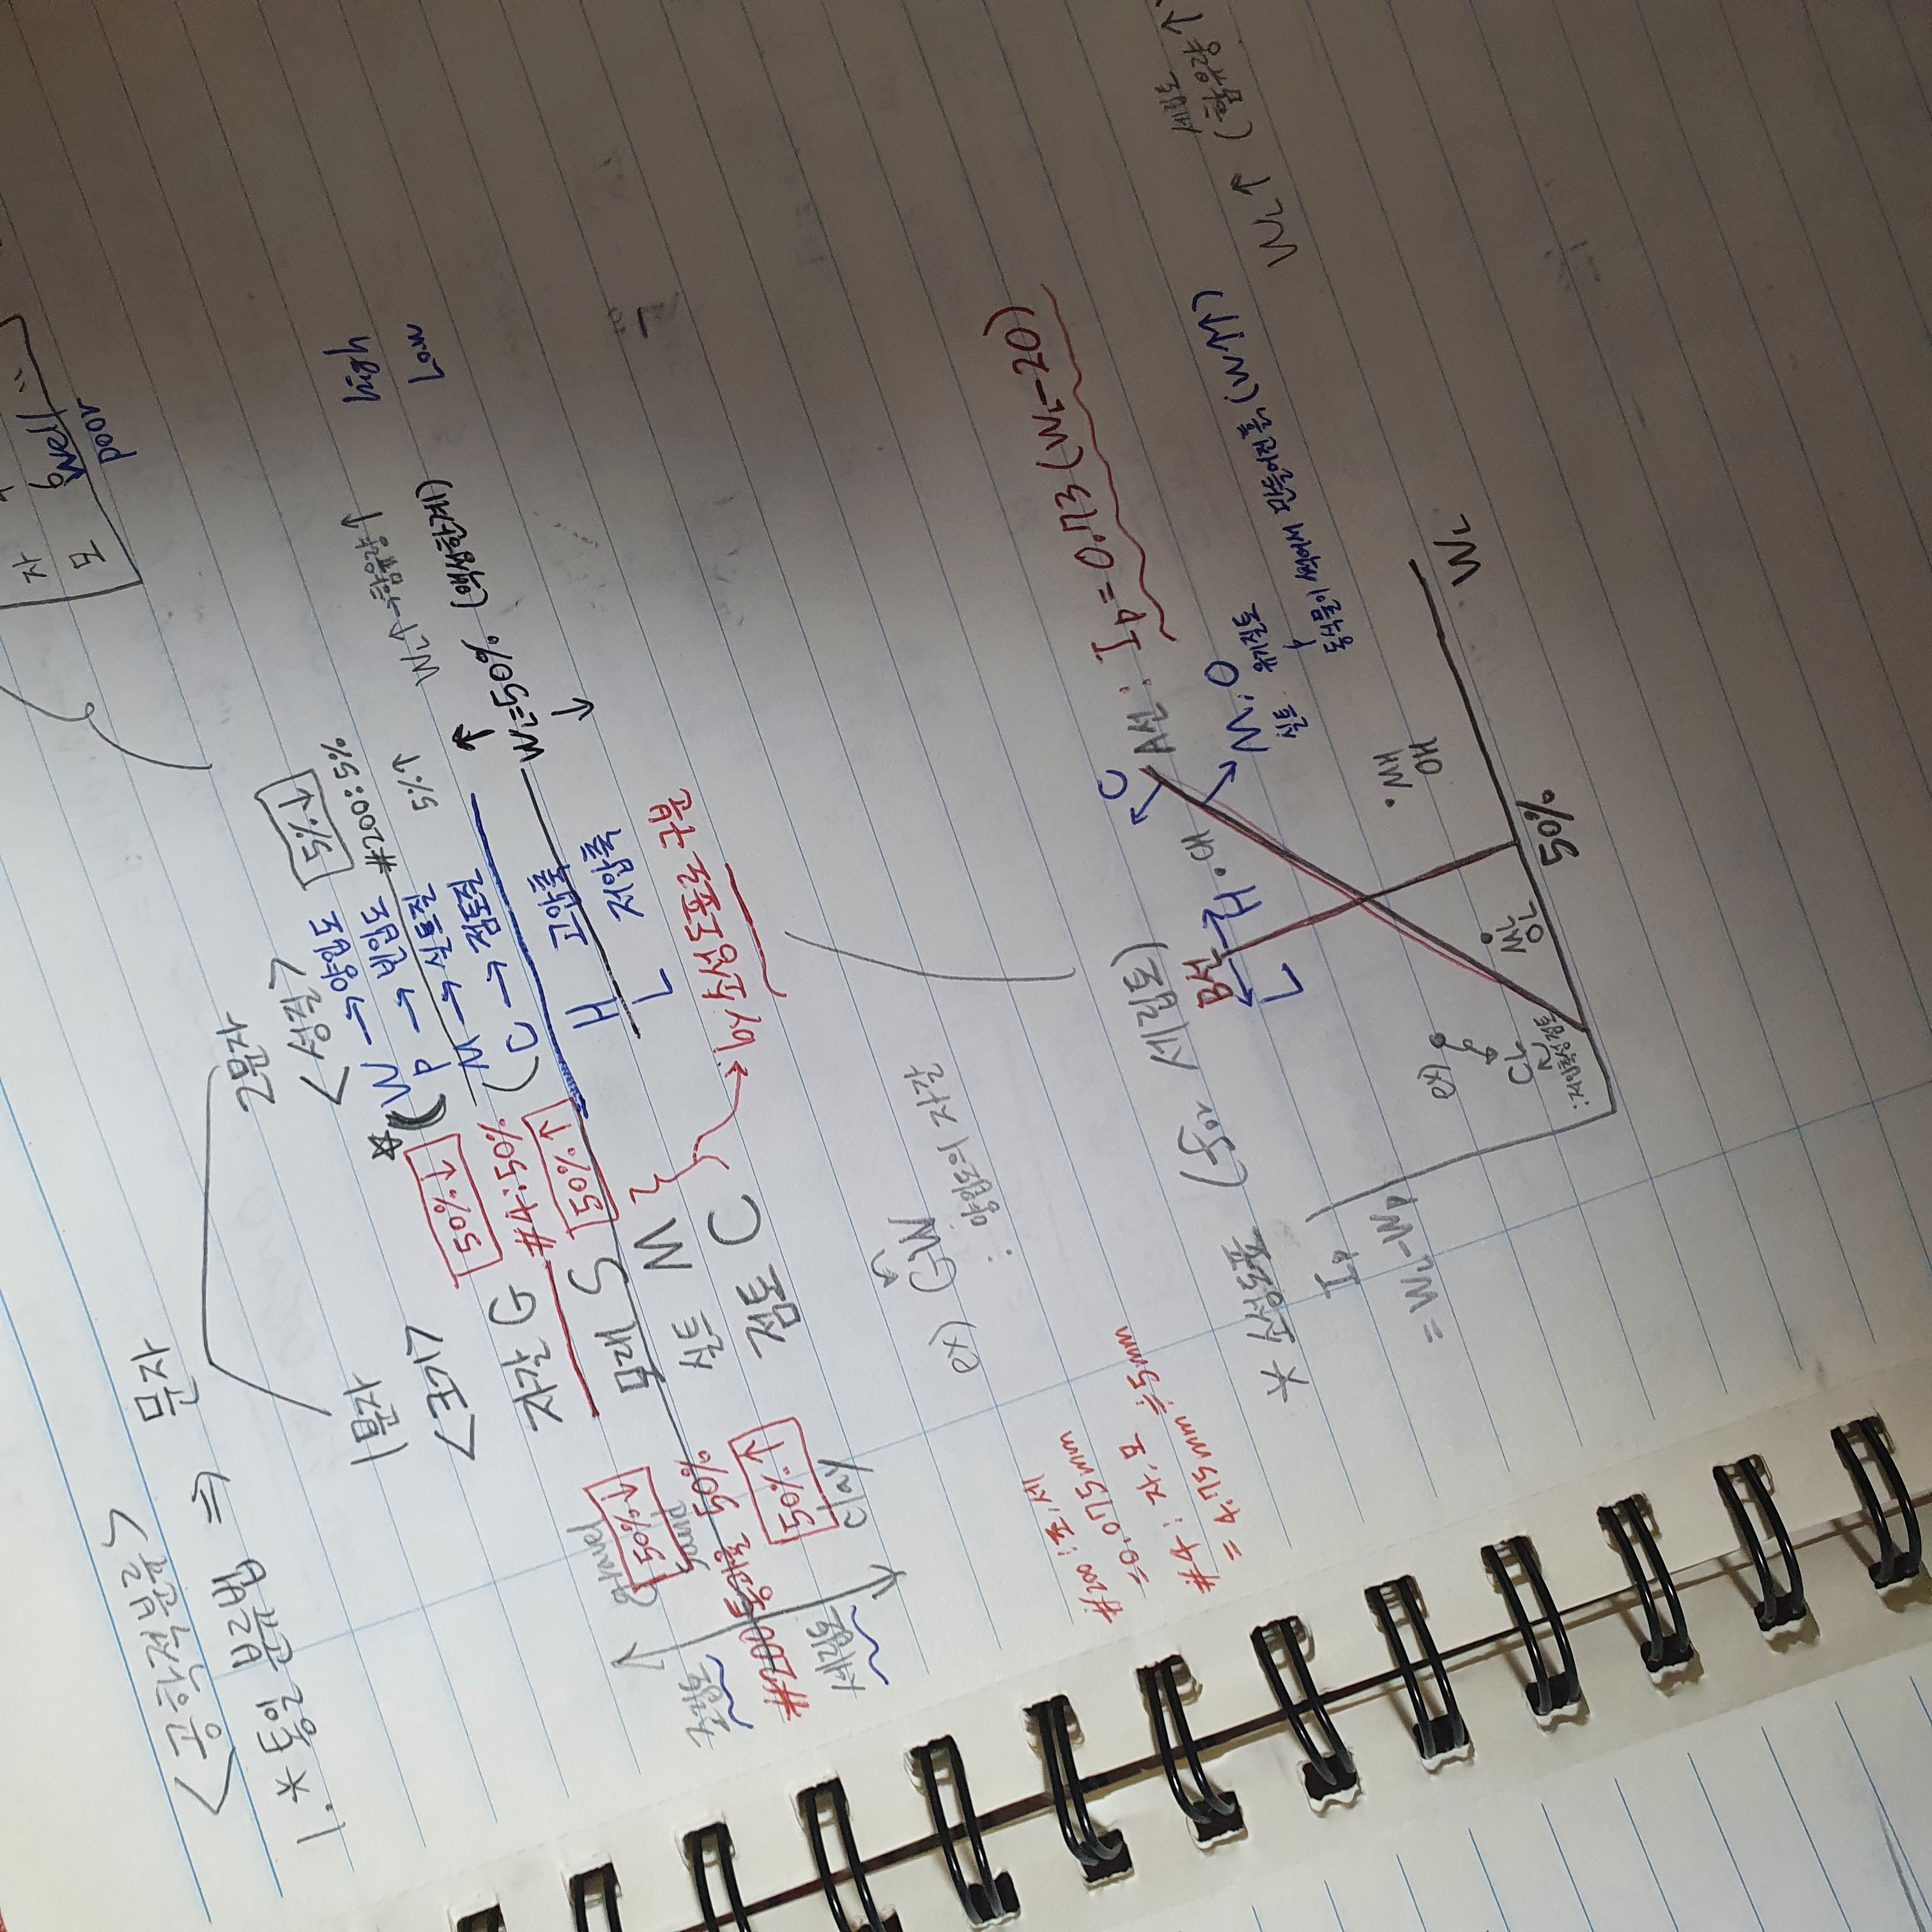 자
모
Well
poor
<공학적분류>
1. * 통일 분류법 ⇒ 문자
1문자
2문자
<크기>
<성질>
5%↓
W → 양입도
#200:5%
P → 빈입도
high
50%↓
M → 실트질
5%↑
WL↑→함유량↑
Low
자갈 G
#4:50%
C → 점토질
50%↑
WL=50%
gravel
모래 S
H 고압축
조립토
50%↓
sand
실트 M
L 저압축
#200통과율 50%
점토 C
→ by 소성도표로 구분
세립토
50%↑
clay
ex) GW
: 양입도의 자갈
#200 : 조.세
=0.075mm
#4 : 자.모
=4.75mm ≒5mm
* 소성도표 (for 세립토)
A선 : Ip=0.73(WL-20)
C
B선
L
H
M, O
실트 유기질토
동식물이 썩어서 만들어진 흙
세립토
WL↑ (함유량↑)
Ip
=WL-Wp
ex)
CL
:저압축성점토
ML
OL
CH
MH
OH
50%
WL